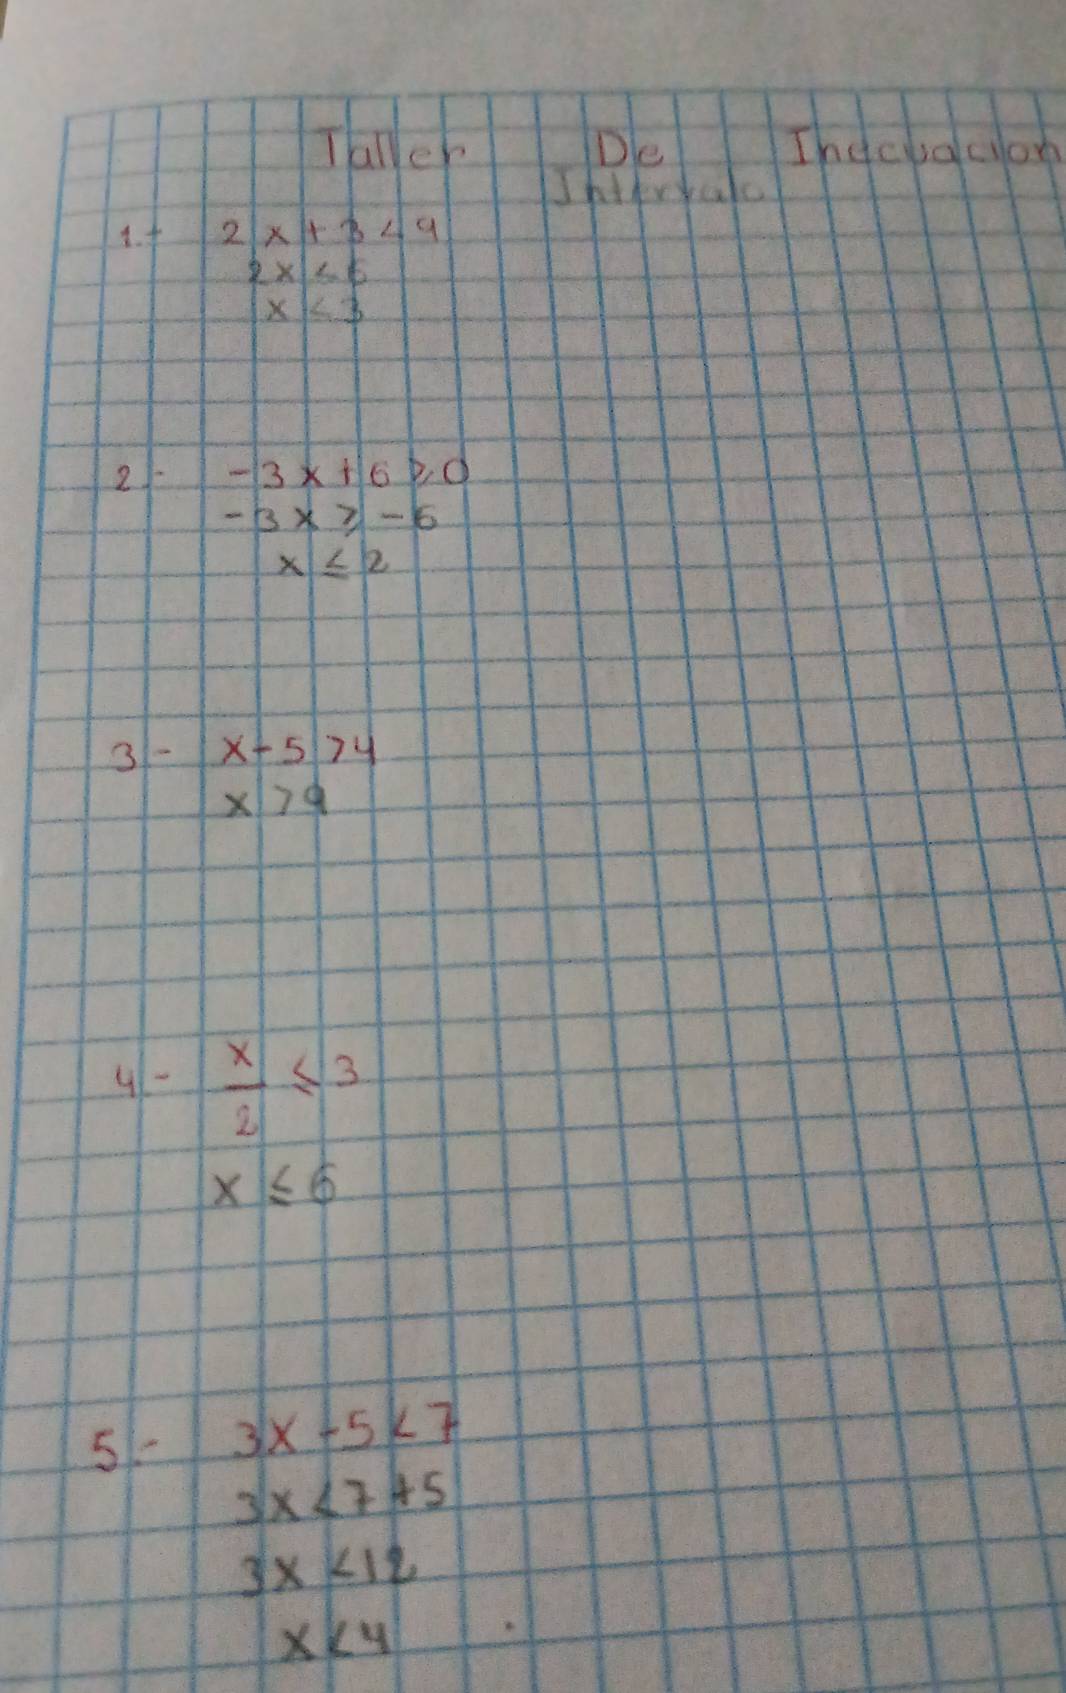 Taller De Inecuacion
Intervalo
1.- 2x + 3 < 9
2x < 6
x < 3
2.- -3x + 6 ≥ 0
-3x ≥ -6
x ≤ 2
3- x - 5 > 4
x > 9
4- x/2 ≤ 3
x ≤ 6
5.- 3x - 5 < 7
3x < 7 + 5
3x < 12
x < 4